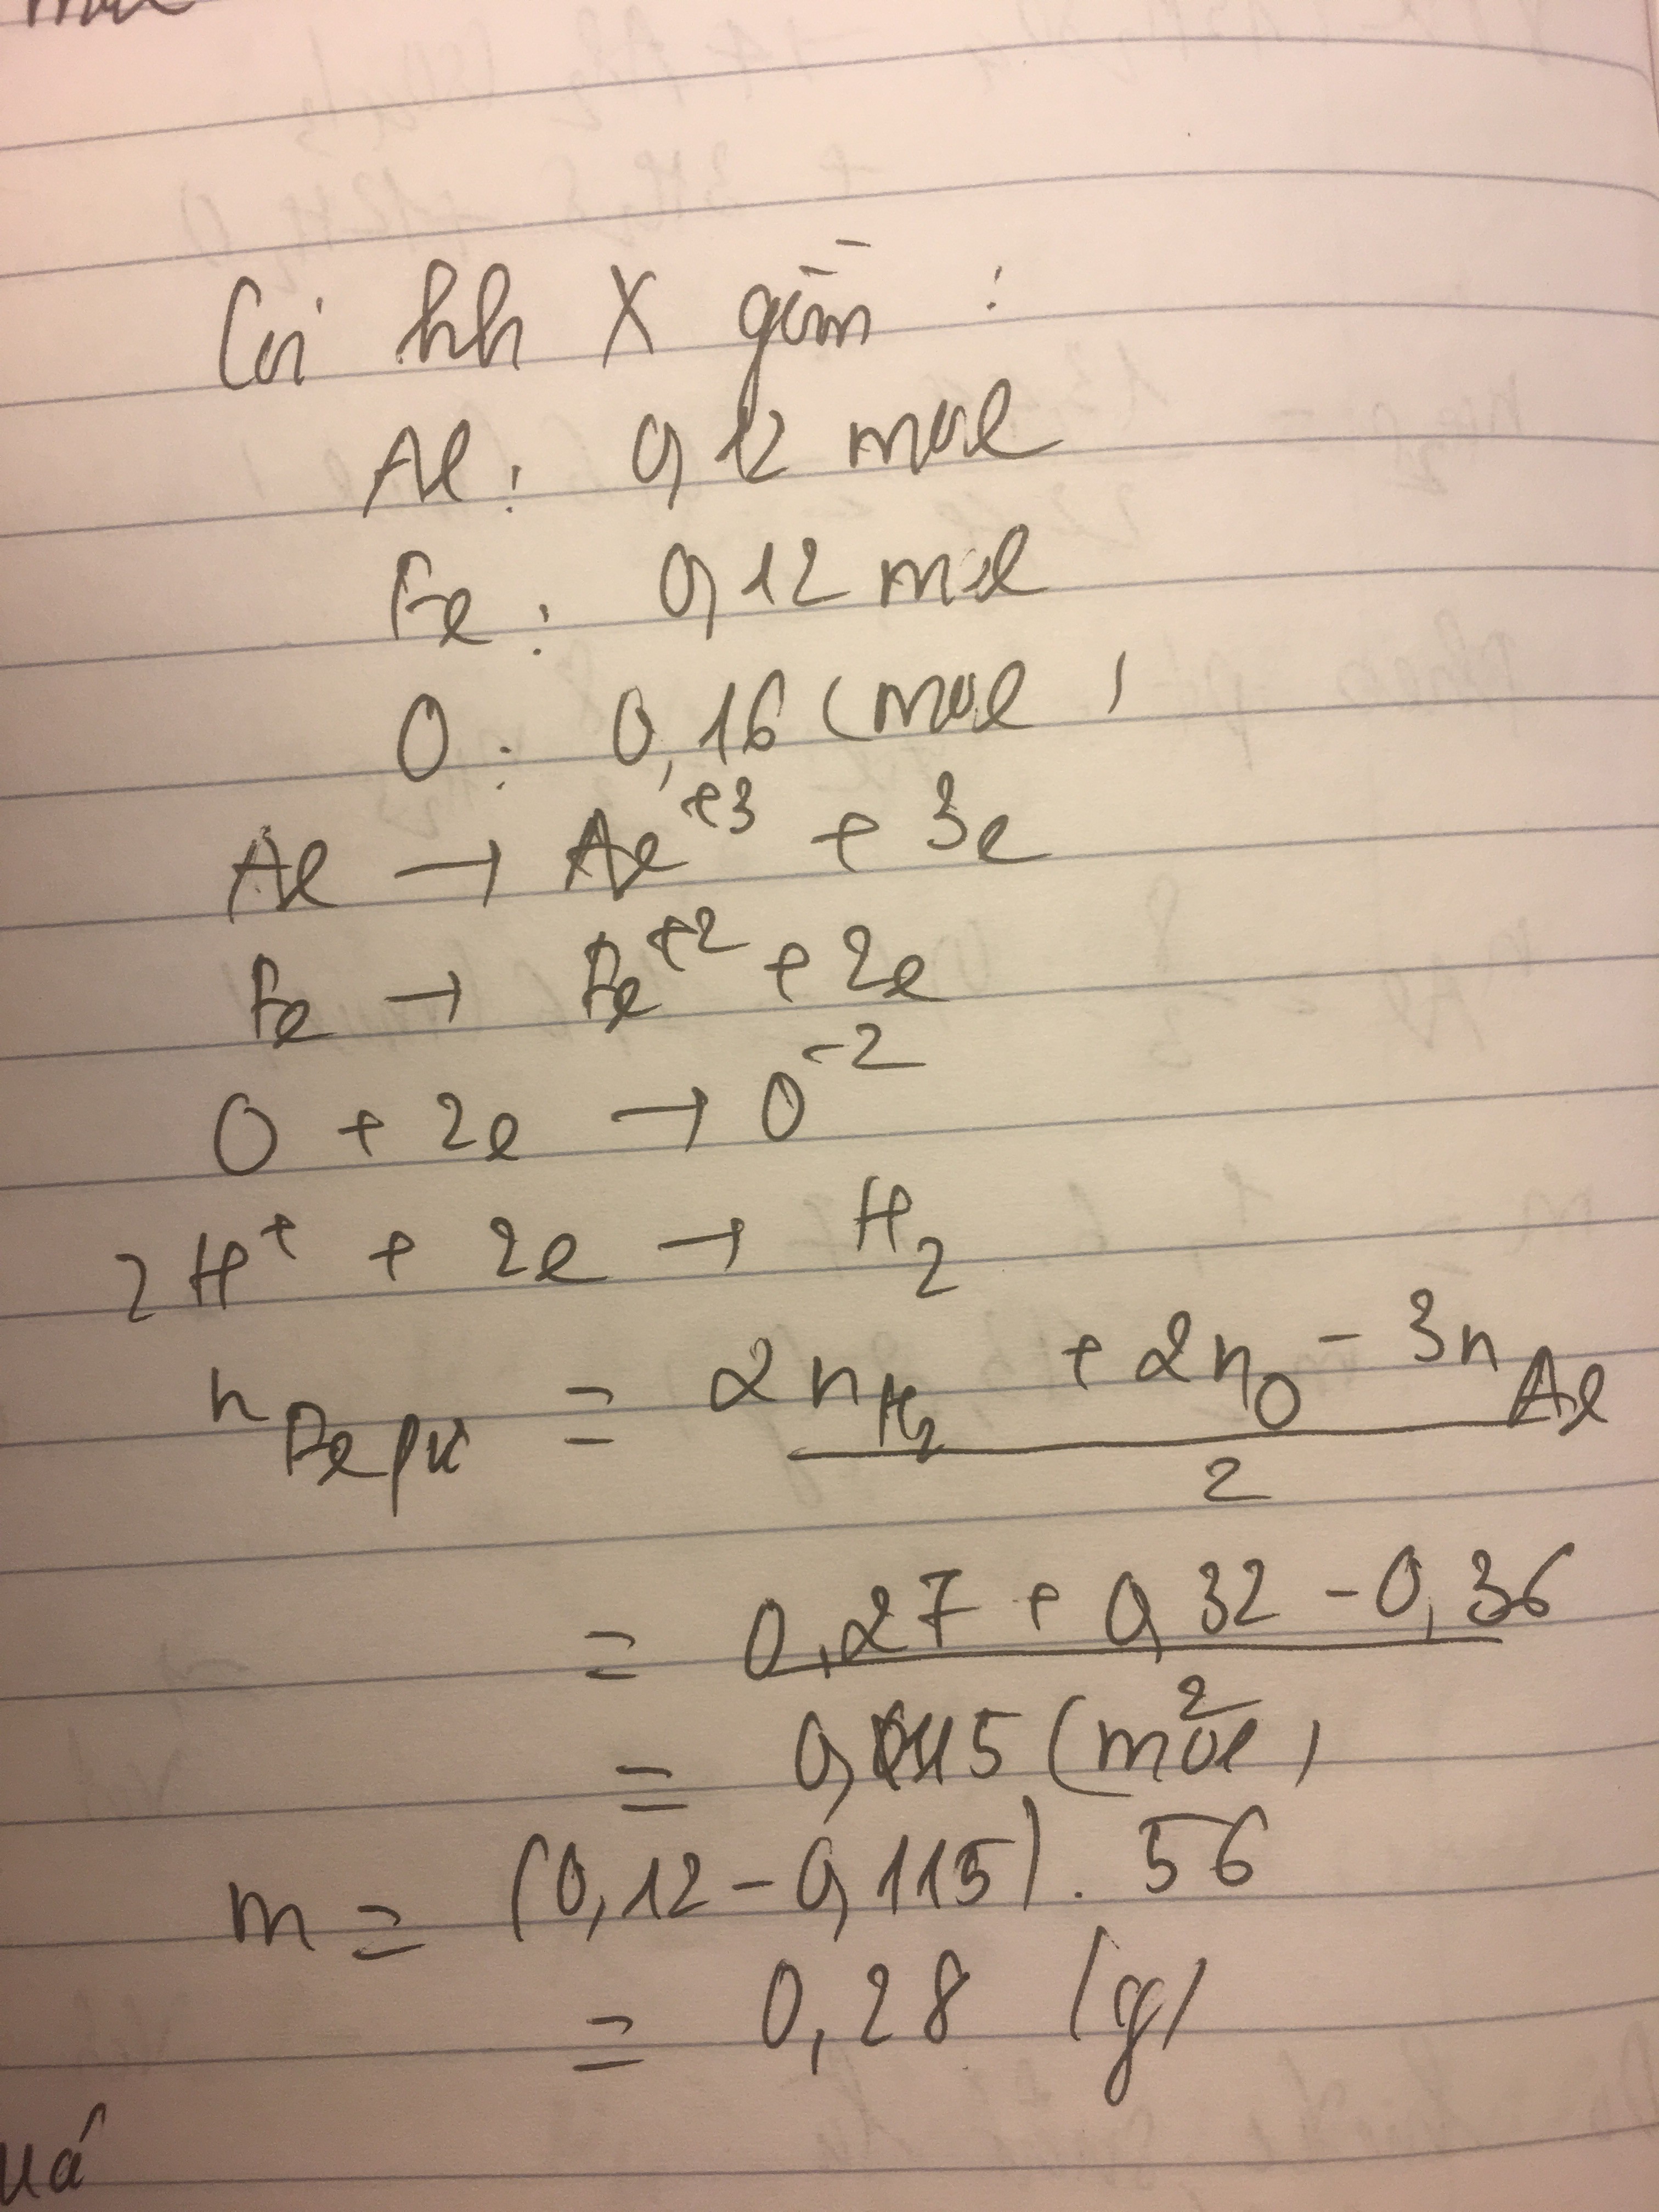 Coi hh X gồm :
Al : 0,12 mol
Fe : 0,12 mol
O : 0,16 (mol)
Al → Al⁺³ + 3e
Fe → Fe⁺² + 2e
O + 2e → O⁻²
2H⁺ + 2e → H₂
n Fe pư = (2n H₂ + 2n O - 3n Al) / 2
= (0,27 + 0,32 - 0,36) / 2
= 0,115 (mol)
m = (0,12 - 0,115) . 56
= 0,28 (g)